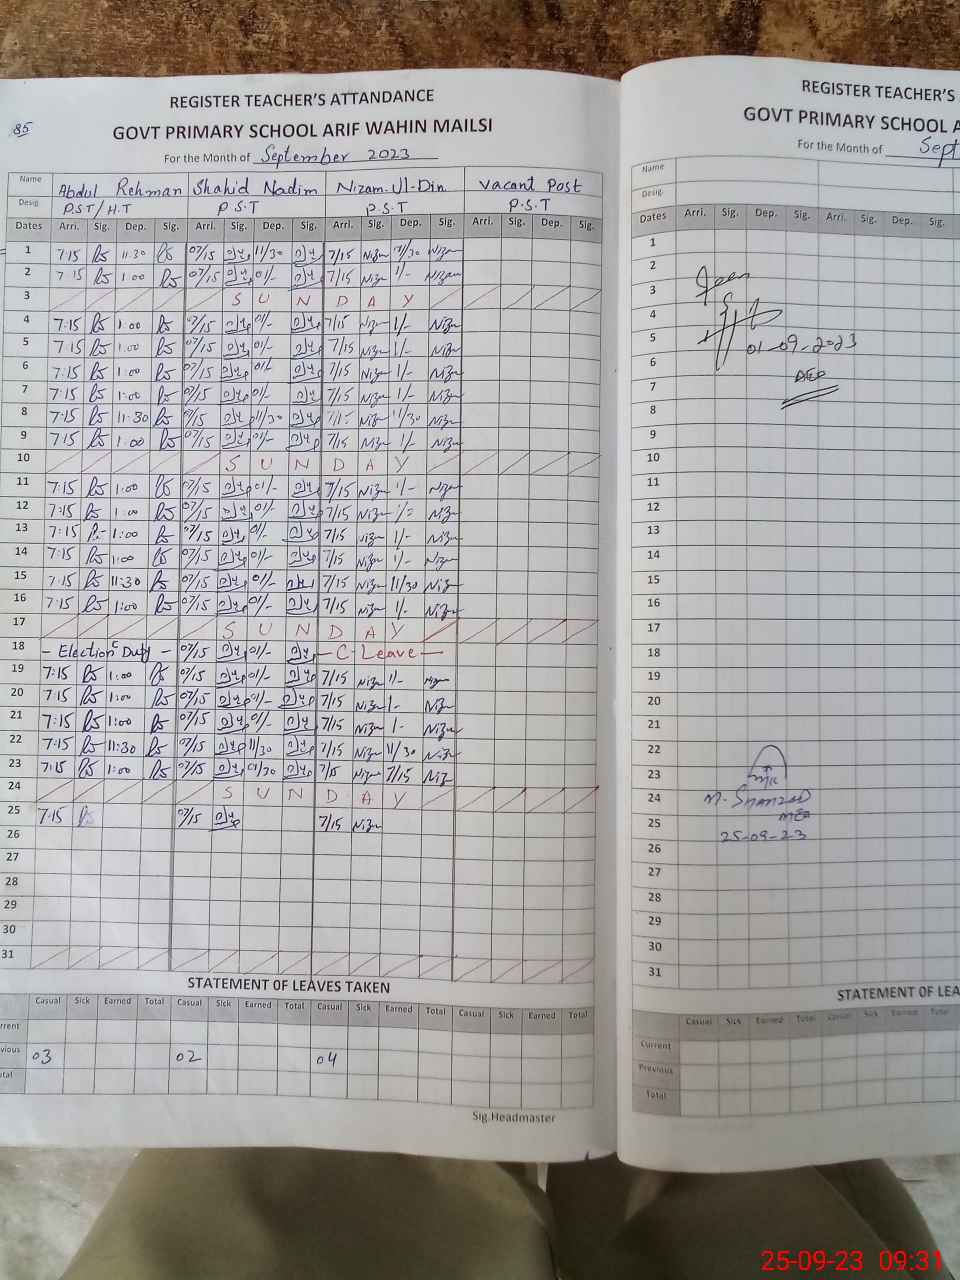 REGISTER TEACHER'S ATTANDANCE
85
GOVT PRIMARY SCHOOL ARIF WAHIN MAILSI
For the Month of September 2023
Name Abdul Rehman Shahid Nadim Nizam-Ul-Din Vacant Post
Desig. P.ST/H.T P.S.T P.S.T P.S.T
Dates Arri. Sig. Dep. Sig. Arri. Sig. Dep. Sig. Arri. Sig. Dep. Sig. Arri. Sig. Dep. Sig.
1 7:15 11:30 07/15 11/30 7/15 Nizam 11/30 Nizam
2 7:15 1:00 07/15 01/- 7/15 Nizam 1/- Nizam
3 S U N D A Y
4 7:15 1:00 07/15 01/- 7/15 Nizam 1/- Nizam
5 7:15 1:00 07/15 01/- 7/15 Nizam 1/- Nizam
6 7:15 1:00 07/15 01/- 7/15 Nizam 1/- Nizam
7 7:15 1:00 07/15 01/- 7/15 Nizam 1/- Nizam
8 7:15 11:30 07/15 11/30 7/15 Nizam 11/30 Nizam
9 7:15 1:00 07/15 01/- 7/15 Nizam 1/- Nizam
10 S U N D A Y
11 7:15 1:00 07/15 01/- 7/15 Nizam 1/- Nizam
12 7:15 1:00 07/15 01/- 7/15 Nizam 1/- Nizam
13 7:15 1:00 07/15 01/- 7/15 Nizam 1/- Nizam
14 7:15 1:00 07/15 01/- 7/15 Nizam 1/- Nizam
15 7:15 11:30 07/15 01/- 7/15 Nizam 11/30 Nizam
16 7:15 1:00 07/15 01/- 7/15 Nizam 1/- Nizam
17 S U N D A Y
18 - Election Duty - 07/15 01/- - C-Leave -
19 7:15 1:00 07/15 01/- 7/15 Nizam 1/- Nizam
20 7:15 1:00 07/15 01/- 7/15 Nizam 1- Nizam
21 7:15 1:00 07/15 01/- 7/15 Nizam 1- Nizam
22 7:15 11:30 07/15 11/30 7/15 Nizam 11/30 Nizam
23 7:15 1:00 07/15 01/30 7/15 Nizam 7/15 Niz
24 S U N D A Y
25 7:15 07/15 7/15 Nizam
26
27
28
29
30
31
STATEMENT OF LEAVES TAKEN
Casual Sick Earned Total Casual Sick Earned Total Casual Sick Earned Total Casual Sick Earned Total
rrent
vious 03 02 04
tal
Sig.Headmaster
REGISTER TEACHER'S
GOVT PRIMARY SCHOOL A
For the Month of Sept
Name
Desig.
Dates Arri. Sig. Dep. Sig. Arri. Sig. Dep.
1
2
3
4
5 01-09-2023
6
7
8
9
10
11
12
13
14
15
16
17
18
19
20
21
22
23
24 M. Shahzad
25 MEA
25-09-23
26
27
28
29
30
31
STATEMENT OF LEA
Casual Sick Earned Total Casual Sick Earned Total
Current
Previous
Total
25-09-23 09:31